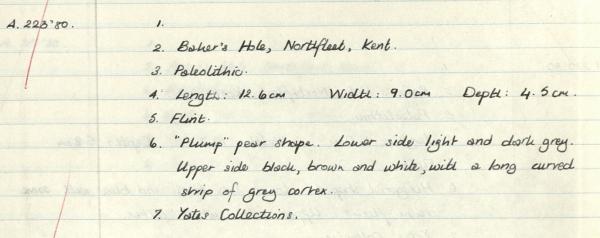 A. 223'80. 1.
2. Baker's Hole, Northfleet, Kent.
3. Paleolithic.
4. Length: 12.6cm Width: 9.0cm Depth: 4.5cm.
5. Flint.
6. "Plump" pear shape. Lower side light and dark grey.
Upper side black, brown and white, with a long curved
strip of grey cortex.
7. Yates Collections.